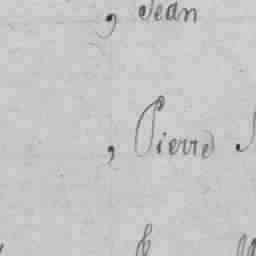 , Jean
, Pierre